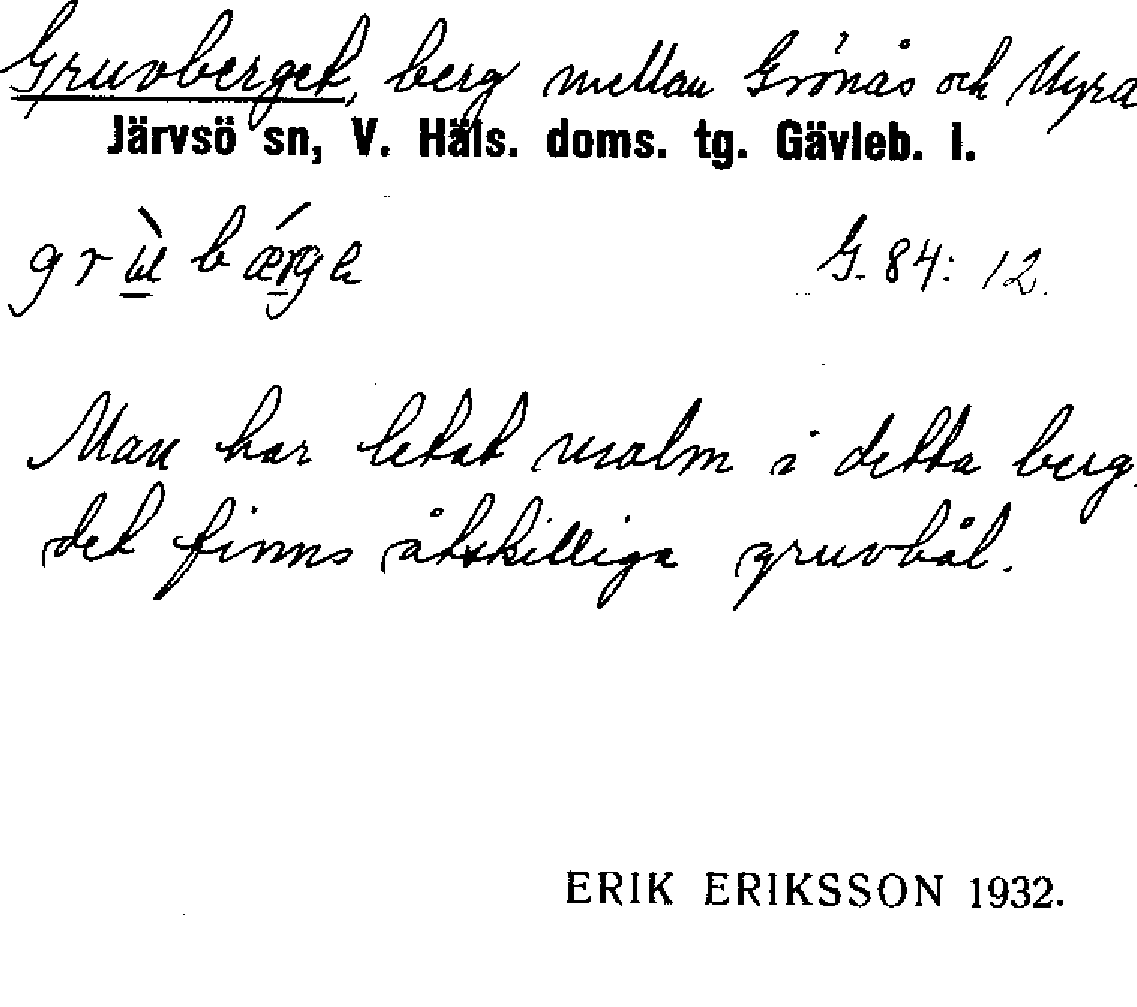 Gruvberget, berg mellan Grönås och Myra
Järvsö sn, V. Häls. doms. tg. Gävleb. l.
grù̱bǽ̱rge G. 84: 12.
Man har letat malm i detta berg.
det finns åtskilliga gruvhål.
ERIK ERIKSSON 1932.